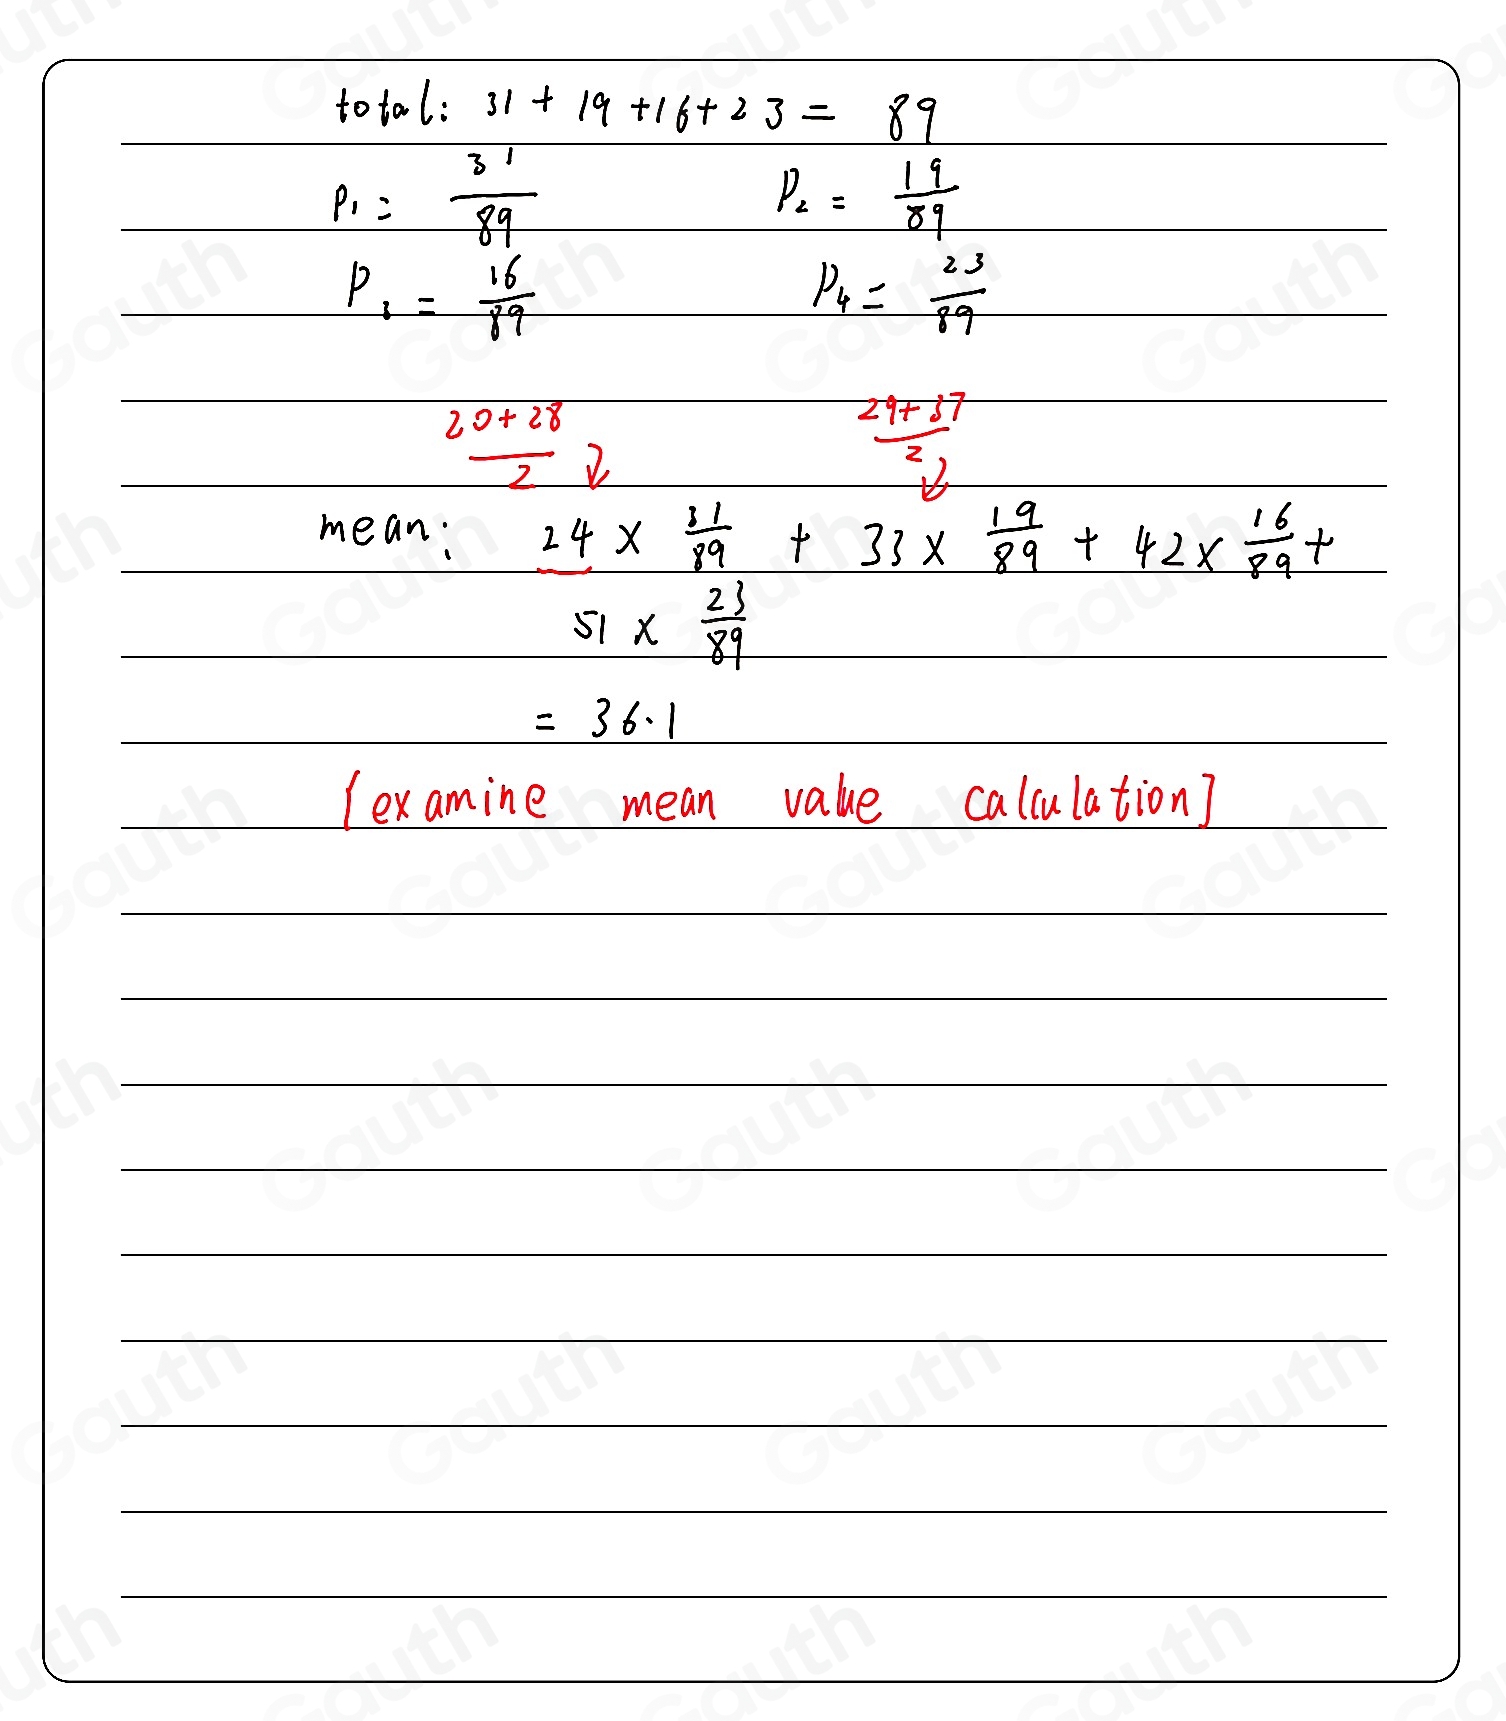 total: 31 + 19 + 16 + 23 = 89
P₁ = 31/89 P₂ = 19/89
P₃ = 16/89 P₄ = 23/89
20+28/2 29+37/2
mean: 24 × 31/89 + 33 × 19/89 + 42 × 16/89 +
51 × 23/89
= 36.1
[examine mean value calculation]
Gauth